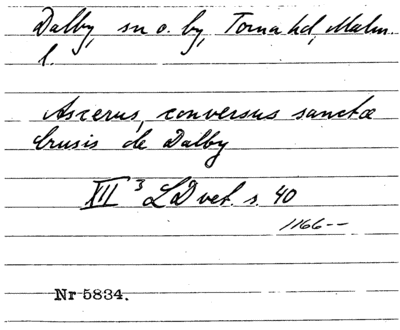 Dalby, sn o. by, Torna hd, Malm.
l.
Ascerus, conversus sanctæ
Crusis de Dalby
XII 3 LD vet. s. 40
1166--
Nr 5834.